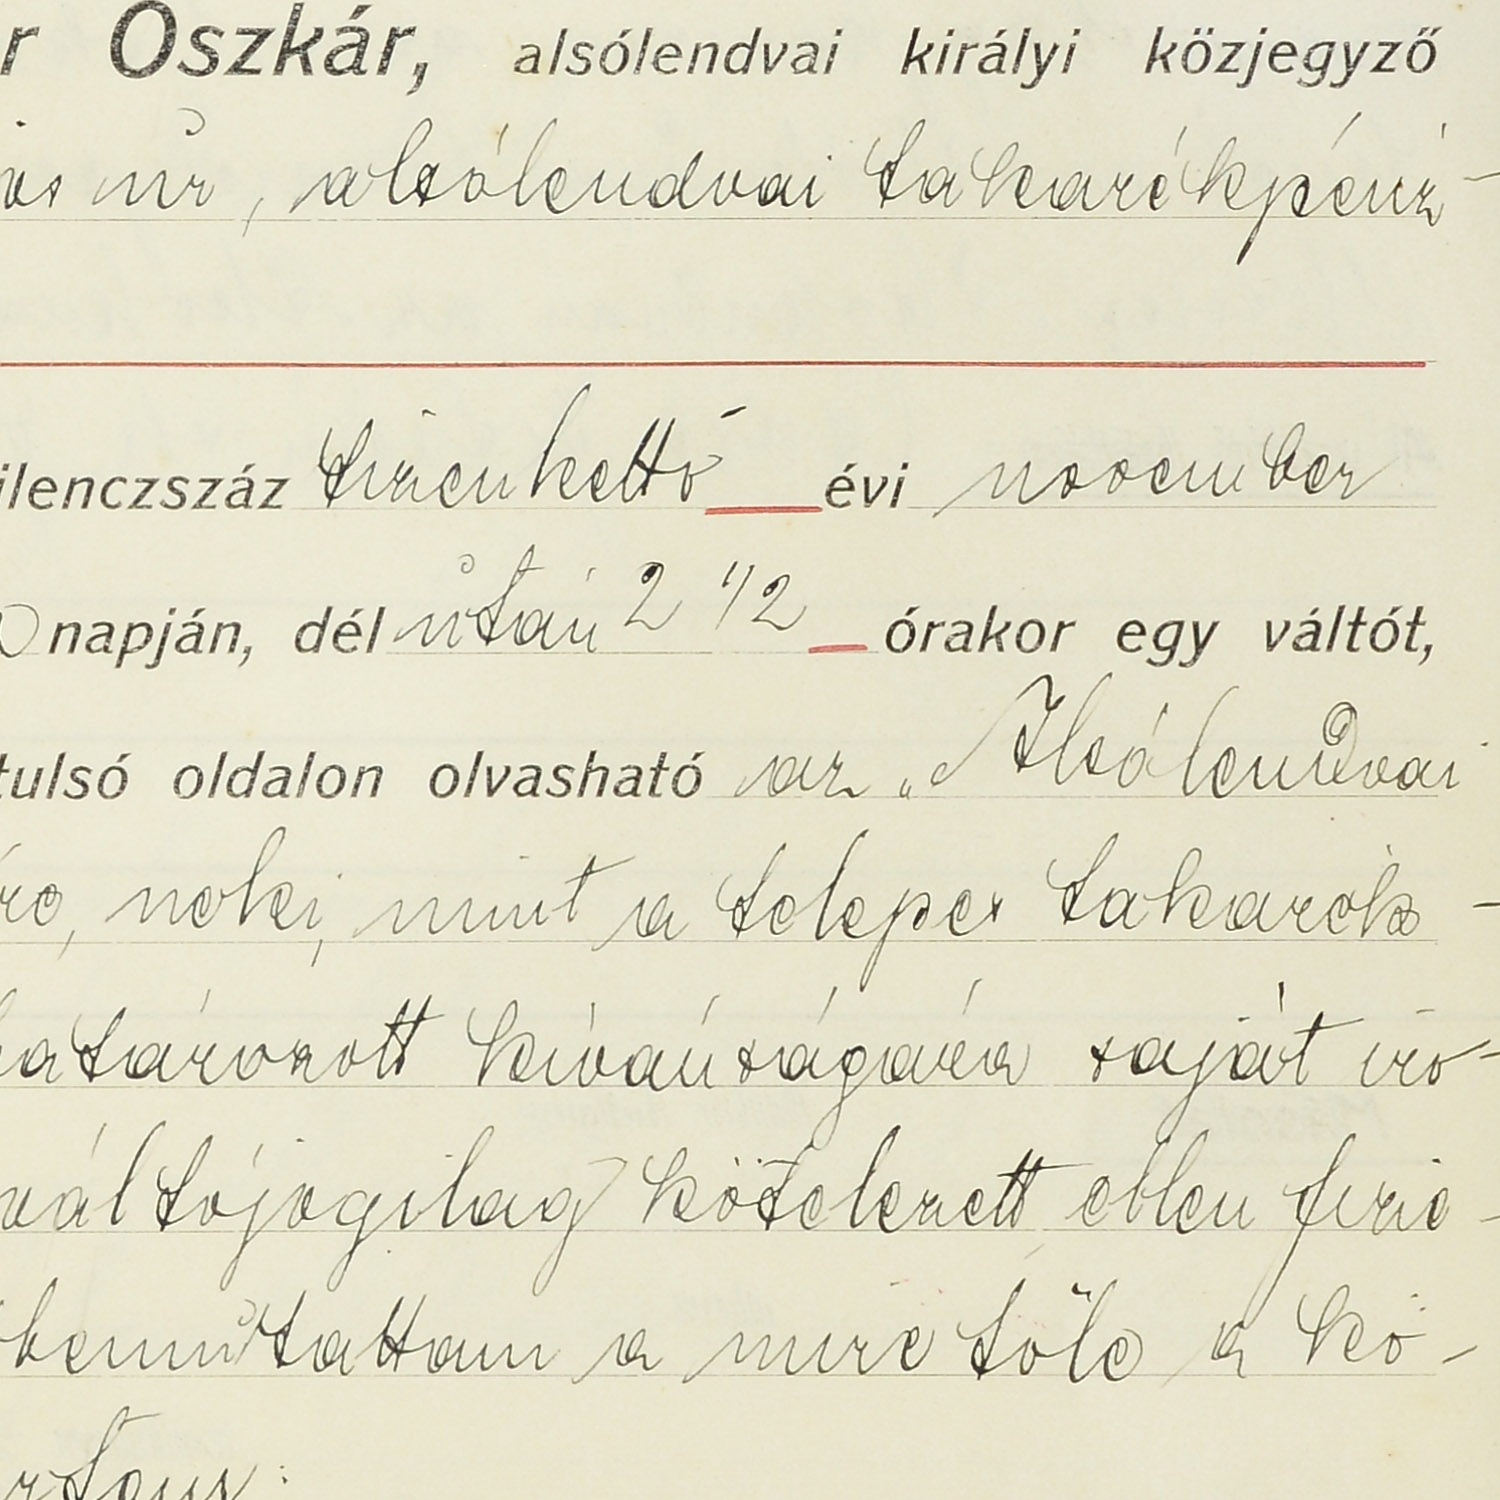 r Oszkár, alsólendvai királyi közjegyző
úr, alsólendvai takarékpénz-
ilenczszáz tizenkettő évi november
napján, dél után 2 1/2 órakor egy váltót,
tulsó oldalon olvasható az „Alsólendvai
neki, mint a telepes takarék-
határozott kívánságára saját iro-
váltójogilag kötelezett ellen fize-
bemutattam a mire tőle a kö-